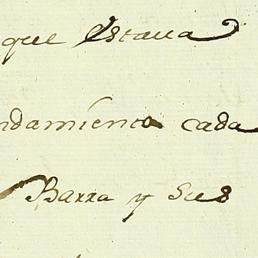 que Estaua
ndamiento cada
Barra y Sus